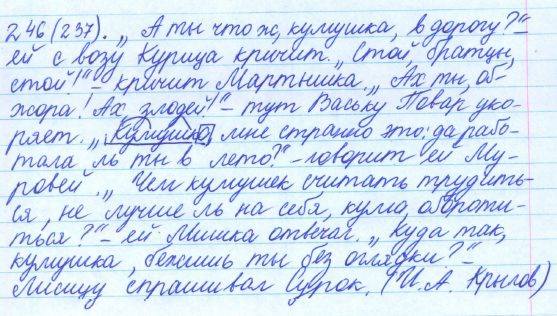 246(237). „А ты что ж, кумушка, в дорогу?"–
ей с возу Курица кричит. „Стой, братцы,
стой!" – кричит Мартышка. „Ах ты, об-
жора! Ах, злодей!" – тут Ваську Повар уко-
ряет. „Кумушка, мне странно это: да рабо-
тала ль ты в лето?" – говорит ей Му-
равей. „Чем кумушек считать трудить-
ся, не лучше ль на себя, кума, оборотить-
ться?" – ей Мишка отвечал. „Куда так,
кумушка, бежишь ты без оглядки?" –
Лисицу спрашивал Сурок. (И. А. Крылов)